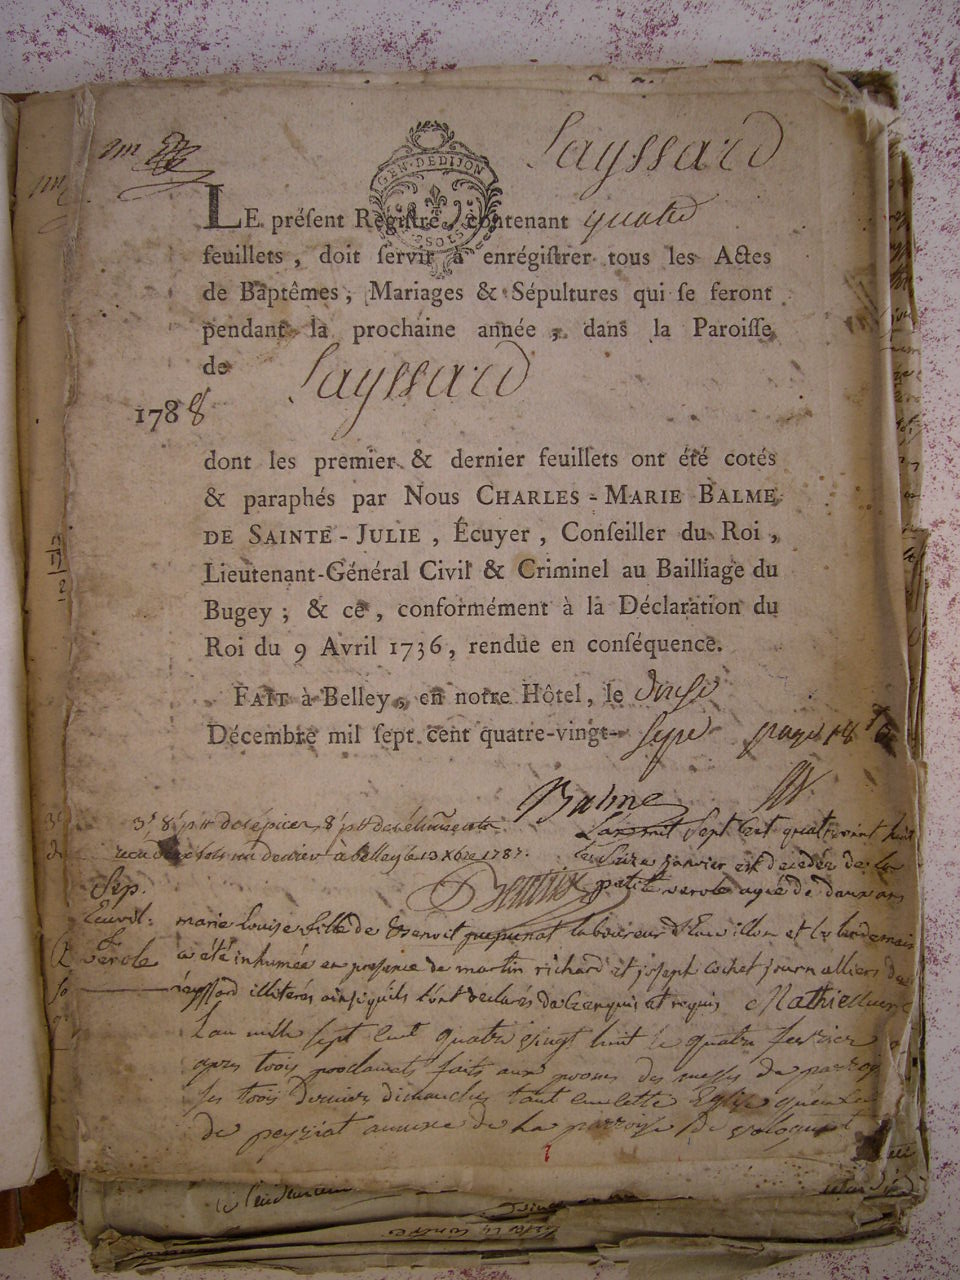 GEN·DEDIJON
Layssard
LE préſent Regiſtre, contenant quatre
feuillets, doit ſervir à enrégiſtrer tous les Actes
de Baptêmes, Mariages & Sépultures qui ſe feront
pendant la prochaine année, dans la Paroiſſe
de Layssard
1788
dont les premier & dernier feuillets ont été cotés
& paraphés par Nous CHARLES-MARIE BALME
DE SAINTE-JULIE, Écuyer, Conſeiller du Roi,
Lieutenant-Général Civil & Criminel au Bailliage du
Bugey; & ce, conformément à la Déclaration du
Roi du 9 Avril 1736, rendue en conſéquence.
FAIT à Belley, en notre Hôtel, le douse
Décembre mil ſept cent quatre-vingt-sept
Balme
L'an mil sept cent quatre vint huit
a belley le 13 Xbre 1787.
le seize janvier est decedee de la
petite verole agee de deux ans
Sep.
marie Louise fille de Benoit laboureur et le lendemain
verole
a été inhumée en presence de martin richard et joseph cochet journalliers de
layssard illiterés ainsi qu'ils l'ont declarés de ce enquis et requis
L'an mille sept cent quatre vingt huit le quatre fevrier
apres trois proclamats faits aux prones des messes de parroi
ses trois derniers dimanches tant en cette Eglise qu'en
de peyriat annexe de la parroisse de